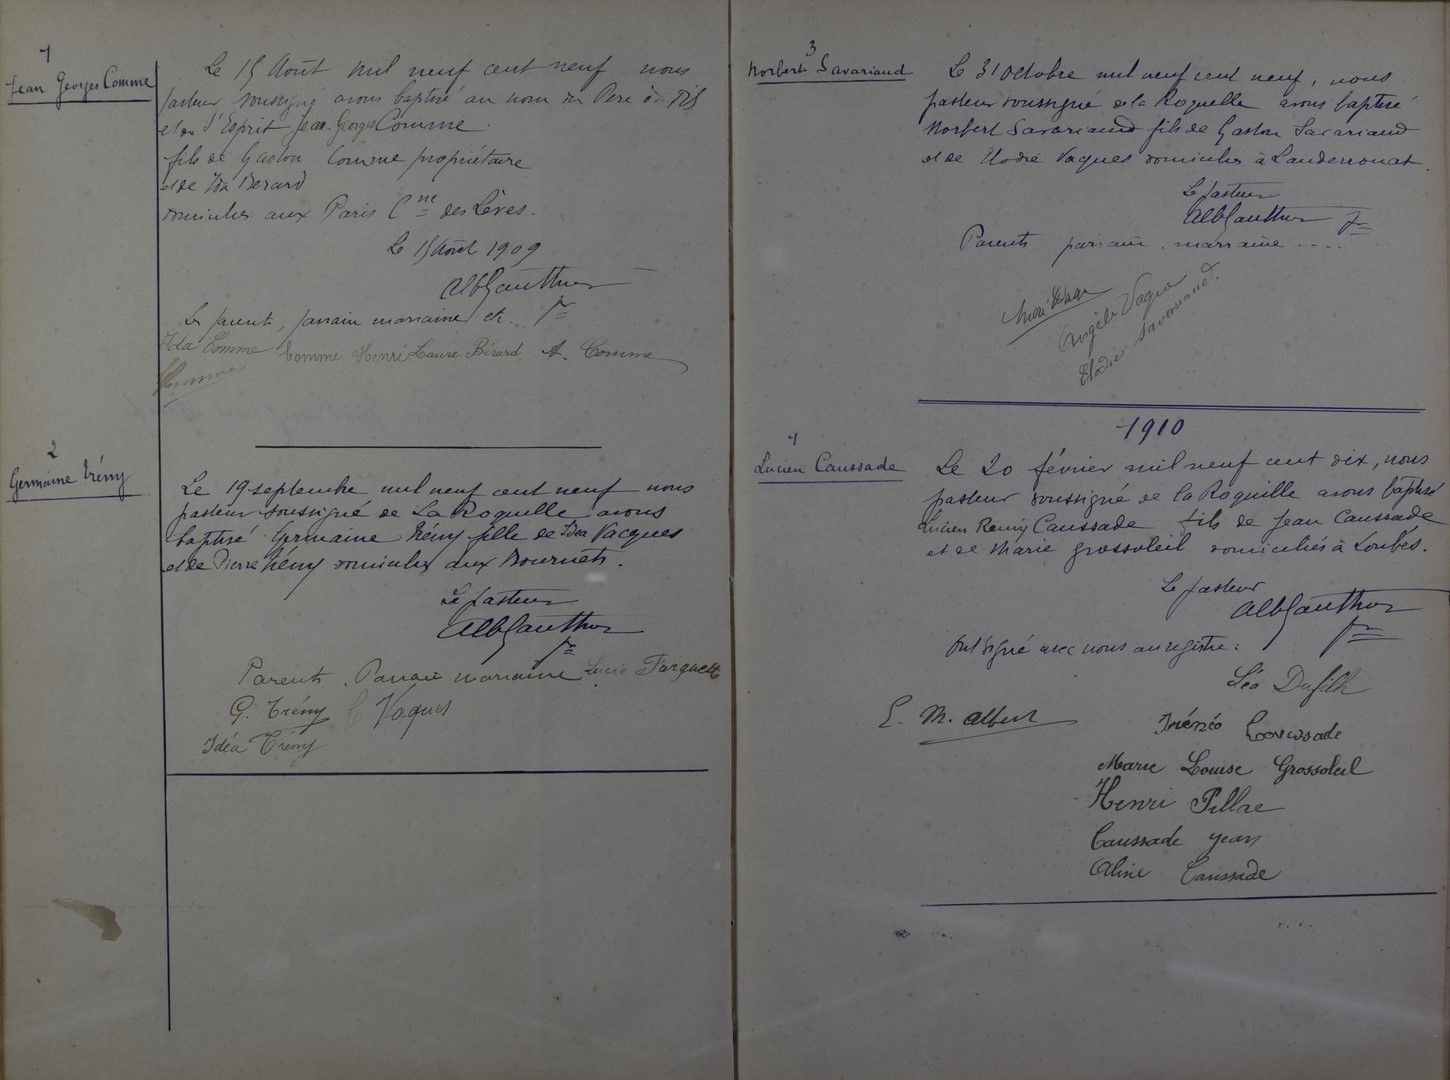 1
Jean Georges Comme
Le 15 Août mil neuf cent neuf nous
pasteur soussigné avons baptisé au nom du Pere du Fils
et du St Esprit Jean-Georges Comme
fils de Gaston Comme propriétaire
et de Ida Berard
domiciliés aux Paris Cne des Lèves.
Le 15 Août 1909
Alb Gauthier
pr
Les parents, parrain marraine etc...
Ida Comme Comme Henri Laure Bérard A. Comme
2
Germaine Trémy
Le 19 septembre mil neuf cent neuf nous
pasteur soussigné de La Roquille avons
baptisé Germaine Trémy fille de Idea Vacques
et de Pierre Trémy domiciliés aux Bournets.
Le pasteur
Alb Gauthier
pr
Parents. Parrain marraine Lucie
G. Trémy Vaques
Idéa Trémy
3
Norbert Savariaud
Le 31 octobre mil neuf cent neuf, nous
pasteur soussigné de la Roquille avons baptisé
Norbert Savariaud fils de Gaston Savariaud
et de Elodie Vaques domiciliés à Landerrouat.
Le pasteur
Alb Gauthier
pr
Parents parrain, marraine ....
Angèle Vaques
Elodie Savariaud.
1910
1
Lucien Caussade
Le 20 février mil neuf cent dix, nous
pasteur soussigné de la Roquille avons baptisé
Lucien Remy Caussade fils de Jean Caussade
et de Marie Grossoleil domiciliés à Loubès.
Le pasteur
Alb Gauthier
pr
Ont signé avec nous au registre:
Léo Dufilh
E. M. Albert
Irénée Caussade
Marie Louise Grossoleil
Henri Pillac
Caussade jean
Aline Caussade